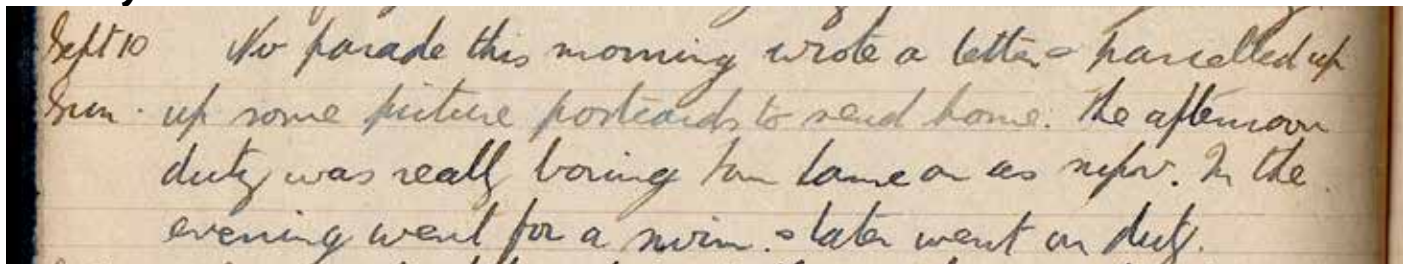 Sept 10 No parade this morning wrote a letter & parcelled up
Sun. up some picture postcards to send home. The afternoon
duty was really boring as In the
evening went for a swim. & later went on duty.